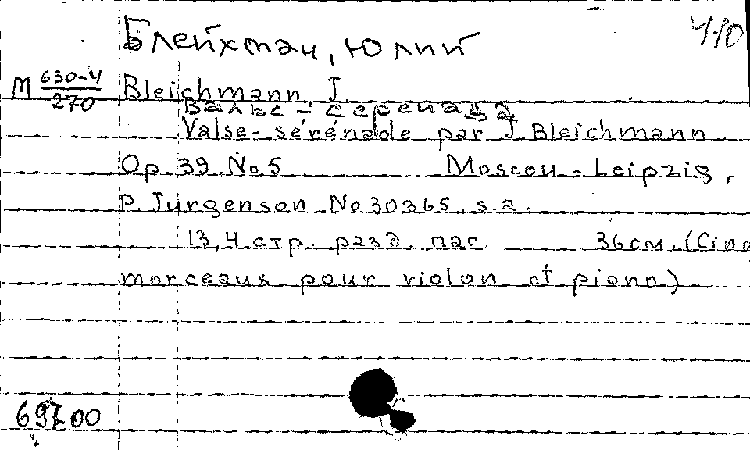 Блейхман, Юлий
410
М 630-4/270 Bleichmann J
Вальс - серенада
Valse-sérénade par J Bleichmann
Op. 39 No 5 Moscou - Leipzig,
P. Jurgenson No 30365, s.a.
13, 4 стр. разд. пас 36 см. (Cinq
morceaux pour violon et piano)